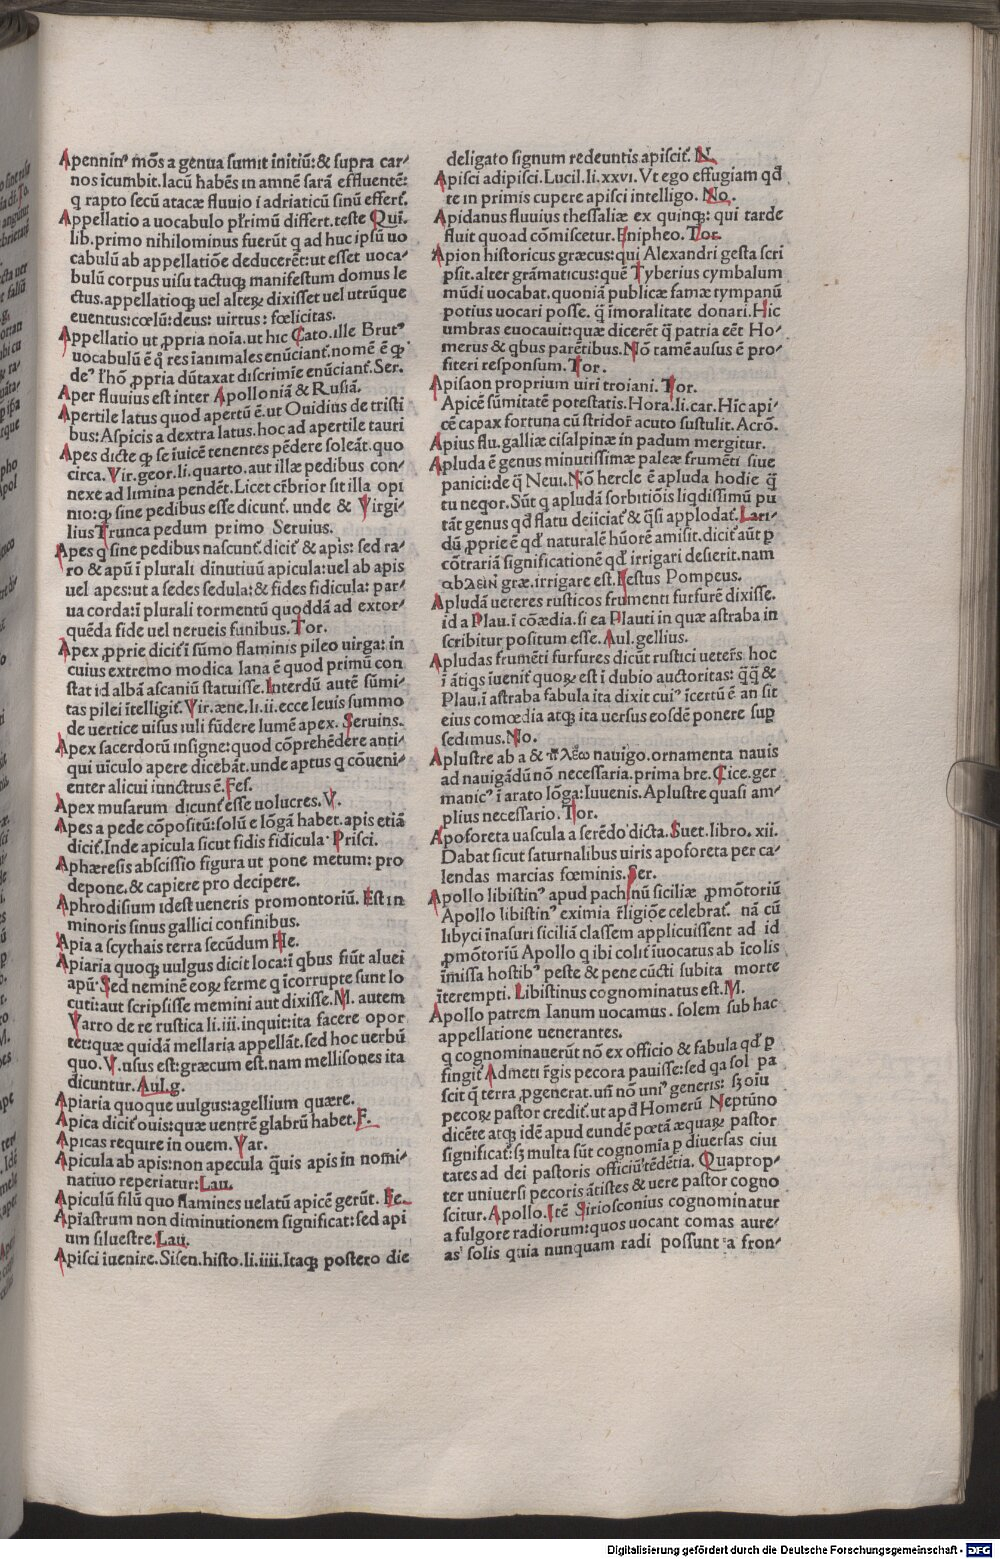 Apennin⁹ mõs a genua sumit initiũ: & supra car⸗
nos ĩcumbit. lacũ habẽs in amnẽ sarã effluentẽ:
q rapto secũ atacæ fluuio i adriaticũ sinũ effert̃.
Appellatio a uocabulo pl̃rimũ differt. teste Qui.
lib. primo nihilominus fuerũt q ad huc ipsũ uo
cabulũ ab appellatiõe deducerẽt: ut esset uoca⸗
bulũ corpus uisu tactuqꝫ manifestum domus le
ctus. appellatioqꝫ uel alteꝝ dixisset uel utrũque
euentus: cœlũ: deus: uirtus: fœlicitas.
Appellatio ut ꝓpria noĩa. ut hic Cato. ille Brut⁹
uocabulũ ẽ q̃ res ĩanimales enũciant̃. nomẽ ẽ qꝫ
de⁹ l̃ hõ ꝓpria dũtaxat discrimĩe enũciant̃. Ser.
Aper fluuius est inter Apolloniã & Rusiã.
Apertile latus quod apertũ ẽ. ut Ouidius de tristi
bus: Aspicis a dextra latus. hoc ad apertile tauri
Apes dicte qꝫ se ĩuicẽ tenentes pẽdere soleãt. quo
circa. Vir. geor. li. quarto. aut illæ pedibus con⸗
nexe ad limina pendẽt. Licet cr̃brior sit illa opi
nio: qꝫ sine pedibus esse dicunt̃. unde & Virgi⸗
lius Trunca pedum primo Seruius.
Apes q sine pedibus nascunt̃. dicit̃ & apis: sed ra⸗
ro & apũ ĩ plurali dinutiuũ apicula: uel ab apis
uel apes: ut a sedes sedula: & fides fidicula: par⸗
ua corda: ĩ plurali tormentũ quoddã ad extor⸗
quẽda fide uel nerueis funibus. Tor.
Apex ꝓprie dicit̃ ĩ sũmo flaminis pileo uirga: in
cuius extremo modica lana ẽ quod primũ con
stat id albã ascaniũ statuisse. Interdũ autẽ sũmi⸗
tas pilei ĩtelligit̃. Vir. æne. li. ii. ecce leuis summo
de uertice uisus iuli fũdere lumẽ apex. Seruius.
Apex sacerdotũ insigne: quod cõprehẽdere anti⸗
qui uĩculo apere dicebãt. unde aptus q cõueni⸗
enter alicui iunctus ẽ. Fes.
Apex musarum dicunt̃ esse uolucres. V.
Apes a pede cõpositũ: solũ e lõgã habet. apis etiã
dicit̃. Inde apicula sicut fidis fidicula. Prisci.
Aphæresis abscissio figura ut pone metum: pro
depone. & capiere pro decipere.
Aphrodisium idest ueneris promontoriũ. Est in
minoris sinus gallici confinibus.
Apia a scythais terra secũdum He.
Apiaria quoqꝫ uulgus dicit loca: ĩ qbus fiũt aluei
apũ. Sed neminẽ eoꝝ ferme q ĩcorrupte sunt lo
cuti: aut scripsisse memini aut dixisse. M. autem
Varro de re rustica li. iii. inquit: ita facere opor
tet: quæ quidã mellaria appellãt. sed hoc uerbũ
quo. V. usus est: græcum est. nam mellisones ita
dicuntur. Aul. g.
Apiaria quoque uulgus: agellium quære.
Apica dicit̃ ouis: quæ uentrẽ glabrũ habet. F.
Apicas require in ouem. Var.
Apicula ab apis: non apecula q̃uis apis in nomi⸗
natiuo reperiatur: Lau.
Apiculũ silũ quo flamines uelatũ apicẽ gerũt. Fe.
Apiastrum non diminutionem significat: sed api
um siluestre. Lau.
Apisci iuenire. Sisen. histo. li. iiii. Itaqꝫ postero die
deligato signum redeuntis apiscit̃. N.
Apisci adipisci. Lucil. li. xxvi. Vt ego effugiam qđ
te in primis cupere apisci intelligo. No.
Apidanus fluuius thessaliæ ex quinqꝫ: qui tarde
fluit quoad cõmiscetur. Enipheo. Tor.
Apion historicus græcus: qui Alexandri gesta scri
psit. alter grãmaticus: quẽ Tyberius cymbalum
mũdi uocabat. quoniã publicæ famæ tympanũ
potius uocari posse. q̃ ĩmoralitate donari. Hic
umbras euocauit: quæ dicerẽt q̃ patria eẽt Ho⸗
merus & qbus parẽtibus. Nõ tamẽ ausus ẽ pro⸗
fiteri responsum. Tor.
Apisaon proprium uiri troiani. Tor.
Apicẽ sũmitatẽ potestatis. Hora. li. car. Hic api⸗
cẽ capax fortuna cũ stridor̃ acuto sustulit. Acrõ.
Apius flu. galliæ cisalpinæ in padum mergitur.
Apluda ẽ genus minutissimæ paleæ frumẽti siue
panici: de q̃ Neui. Nõ hercle ẽ apluda hodie q̃
tu neqor. Sũt q apludã sorbitiõis liqdissimũ pu
tãt genus qđ flatu deiiciat̃ & q̃si applodat̃. Lari⸗
dũ ꝓprie ẽ qđ naturalẽ hũorẽ amisit. dicit̃ aũt p
cõtrariã significationẽ qđ irrigari desierit. nam
αβλειν græ. irrigare est. Festus Pompeus.
Apludã ueteres rusticos frumenti furfurẽ dixisse.
id a Plau. ĩ cõædia. si ea Plauti in quæ astraba in
scribitur positum esse. Aul. gellius.
Apludas frumẽti furfures dicũt rustici ueter̃s hoc
ĩ ãtiqs ĩuenit̃ quoꝝ est ĩ dubio auctoritas: q̃q̃ &
Plau. ĩ astraba fabula ita dixit cui⁹ ĩcertũ ẽ an sit
eius comœdia atqꝫ ita uersus eosdẽ ponere sup
sedimus. No.
Aplustre ab a & πλεω nauigo. ornamenta nauis
ad nauigãdũ nõ necessaria. prima bre. Cice. ger
manic⁹ ĩ arato lõga: Iuuenis. Aplustre quasi am⸗
plius necessario. Tor.
Apoforeta uascula a ferẽdo dicta. Suet. libro. xii.
Dabat sicut saturnalibus uiris apoforeta per ca⸗
lendas marcias fœminis. Ser.
Apollo libistin⁹ apud pachinũ siciliæ ꝓmõtoriũ
Apollo libistin⁹ eximia r̃ligiõe celebrat̃. nã cũ
libyci ĩnasuri siciliã classem applicuissent ad id
ꝓmõtoriũ Apollo q ibi colit̃ ĩuocatus ab ĩcolis
ĩmissa hostib⁹ peste & pene cũcti subita morte
ĩterempti. Libistinus cognominatus est. M.
Apollo patrem Ianum uocamus. solem sub hac
appellatione uenerantes.
q cognominauerũt nõ ex officio & fabula qđ p
fingit̃ Admeti r̃gis pecora pauisse: sed qa sol pa
scit q̃ terra ꝓgenerat. uñ nõ uni⁹ generis: sꝫ oĩu
pecoꝝ pastor credit̃. ut apđ Homerũ Neptũno
dicẽte atqꝫ idẽ apud eundẽ poetã æquaꝝ pastor
significat̃: sꝫ multa sũt cognomĩa p diuersas ciui
tates ad dei pastoris officiũ tẽdẽtia. Quaprop⸗
ter uniuersi pecoris ãtistes & uere pastor cogno
scitur. Apollo. Itẽ Siriosconius cognominatur
a fulgore radiorum: quos uocant comas aure⸗
as solis quia nunquam radi possunt a fron⸗
Digitalisierung gefördert durch die Deutsche Forschungsgemeinschaft - DFG